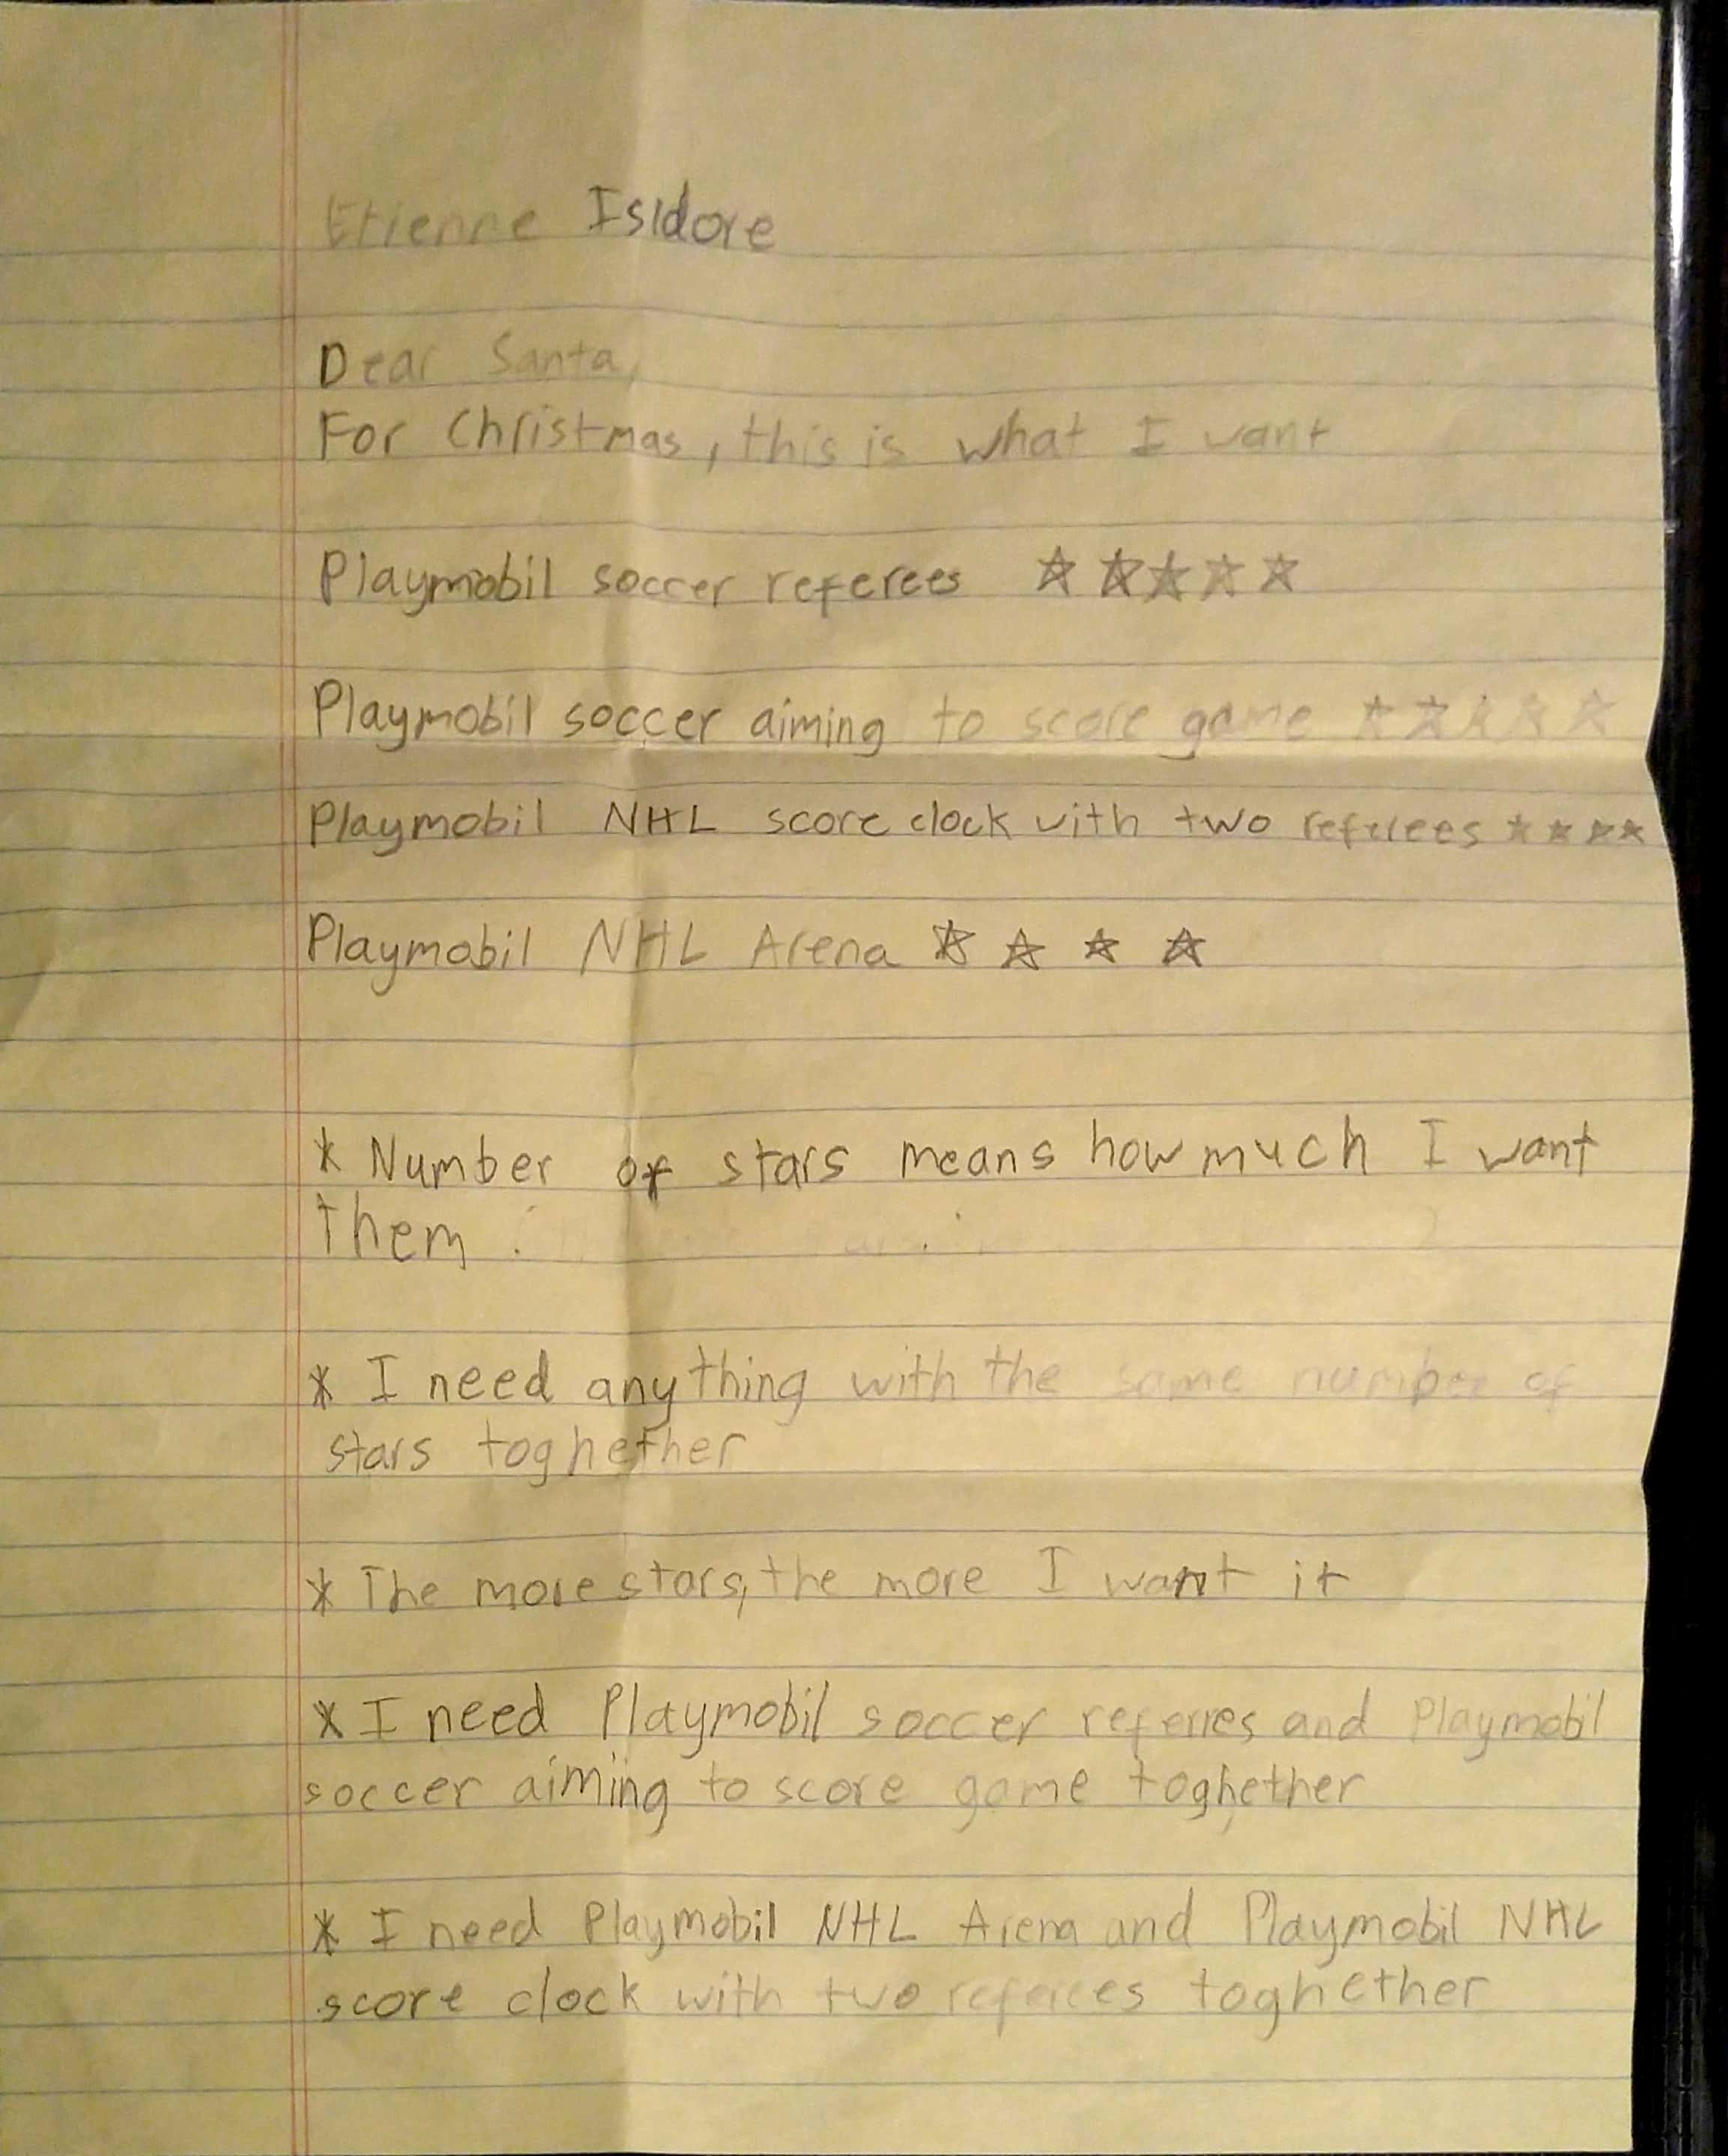 Etienne Isidore
Dear Santa,
For Christmas, this is what I want
Playmobil soccer referees ☆☆☆☆☆
Playmobil soccer aiming to score game ☆☆☆☆☆
Playmobil NHL score clock with two referees ☆☆☆☆
Playmobil NHL Arena ☆☆☆☆
* Number of stars means how much I want
them
* I need anything with the same number of
stars toghether
* The more stars, the more I want it
* I need Playmobil soccer referres and Playmobil
soccer aiming to score game toghether
* I need Playmobil NHL Arena and Playmobil NHL
score clock with two referees toghether